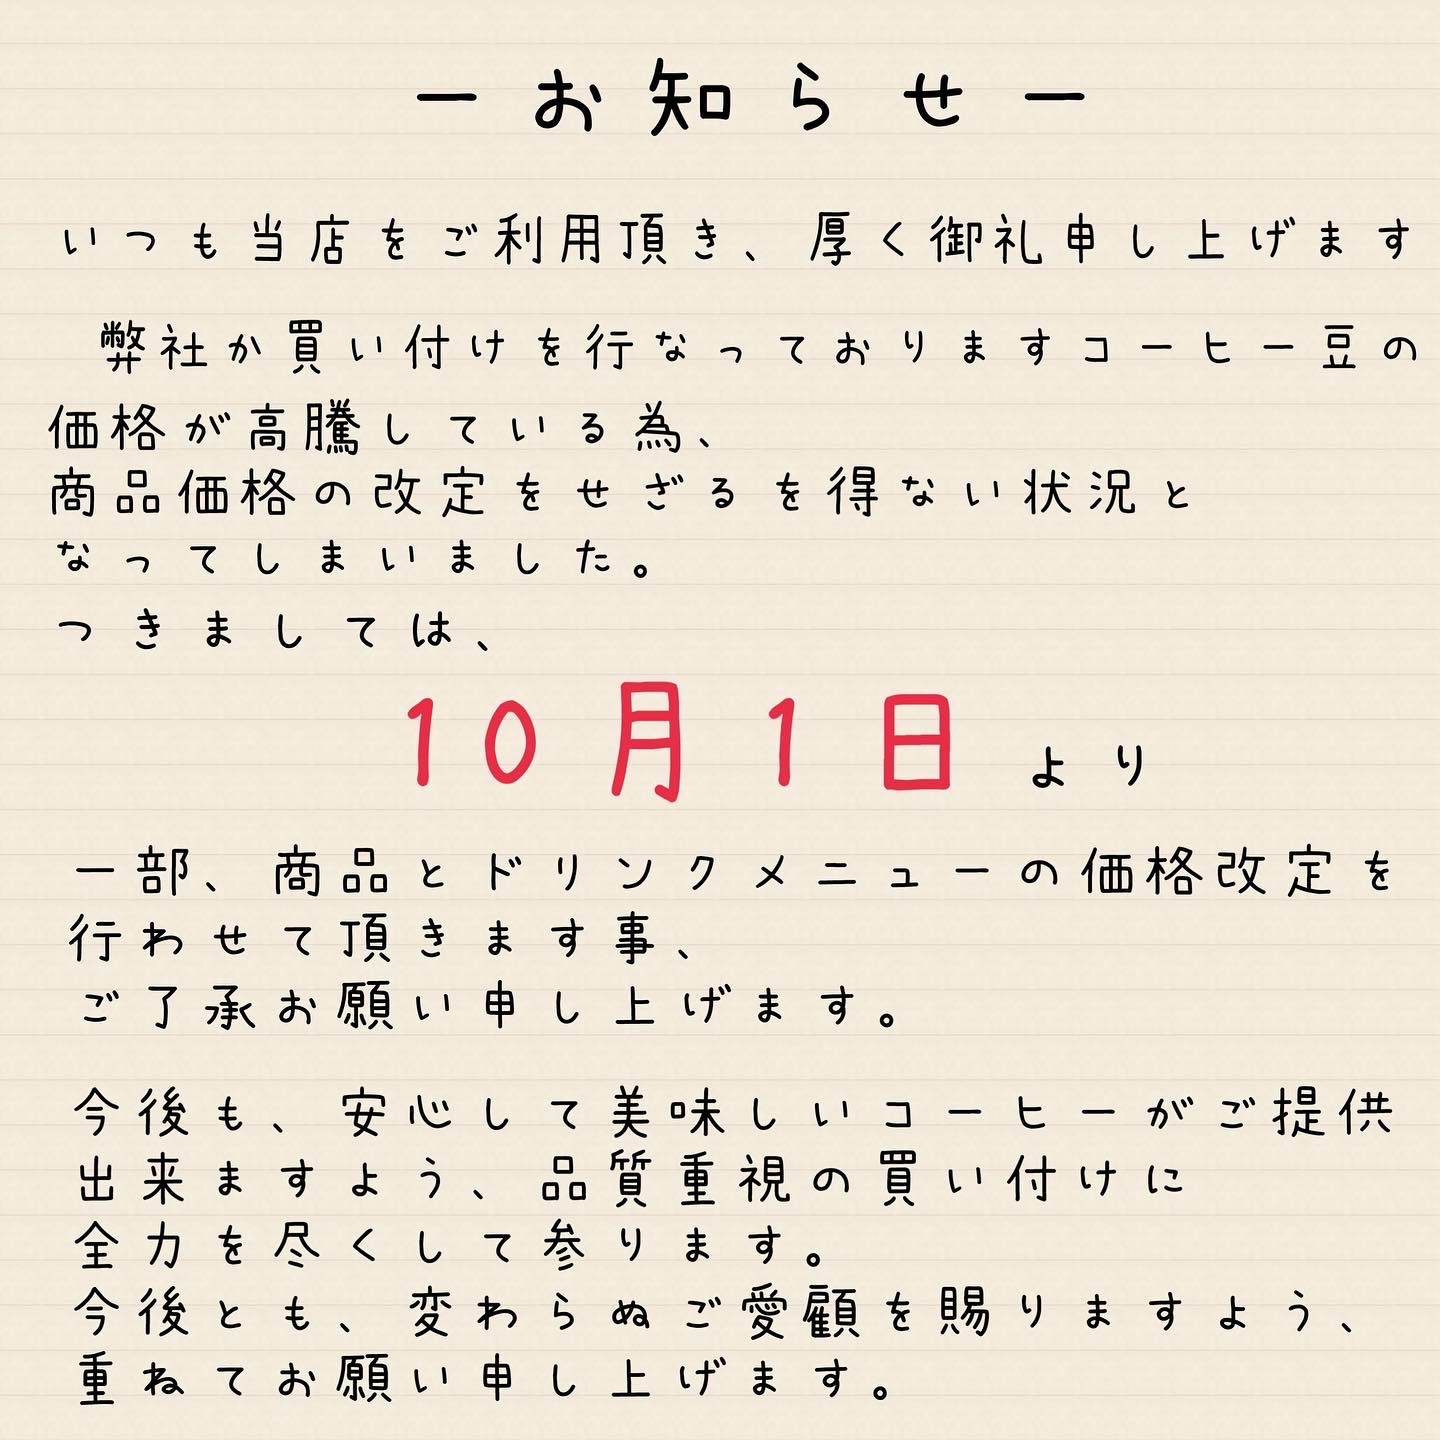 ー お 知 ら せ ー
いつも当店をご利用頂き、厚く御礼申し上げます
弊社か買い付けを行なっておりますコーヒー豆の
価格が高騰している為、
商品価格の改定をせざるを得ない状況と
なってしまいました。
つきましては、
10月1日より
一部、商品とドリンクメニューの価格改定を
行わせて頂きます事、
ご了承お願い申し上げます。
今後も、安心して美味しいコーヒーがご提供
出来ますよう、品質重視の買い付けに
全力を尽くして参ります。
今後とも、変わらぬご愛顧を賜りますよう、
重ねてお願い申し上げます。